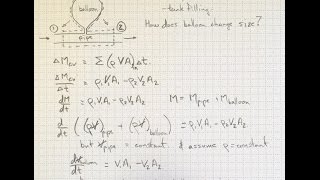 balloon
- tank filling
How does balloon change size?
① ②
pipe
ΔM_cv = Σ(ρVA)_in Δt
ΔM_cv/Δt = ρ₁V₁A₁ - ρ₂V₂A₂
dM/dt = ρ₁V₁A₁ - ρ₂V₂A₂ M = M_pipe + M_balloon
d/dt ((ρV)_pipe + (ρV)_balloon) = ρ₁V₁A₁ - ρ₂V₂A₂
but V_pipe = constant & assume ρ = constant
dV_balloon/dt = V₁A₁ - V₂A₂